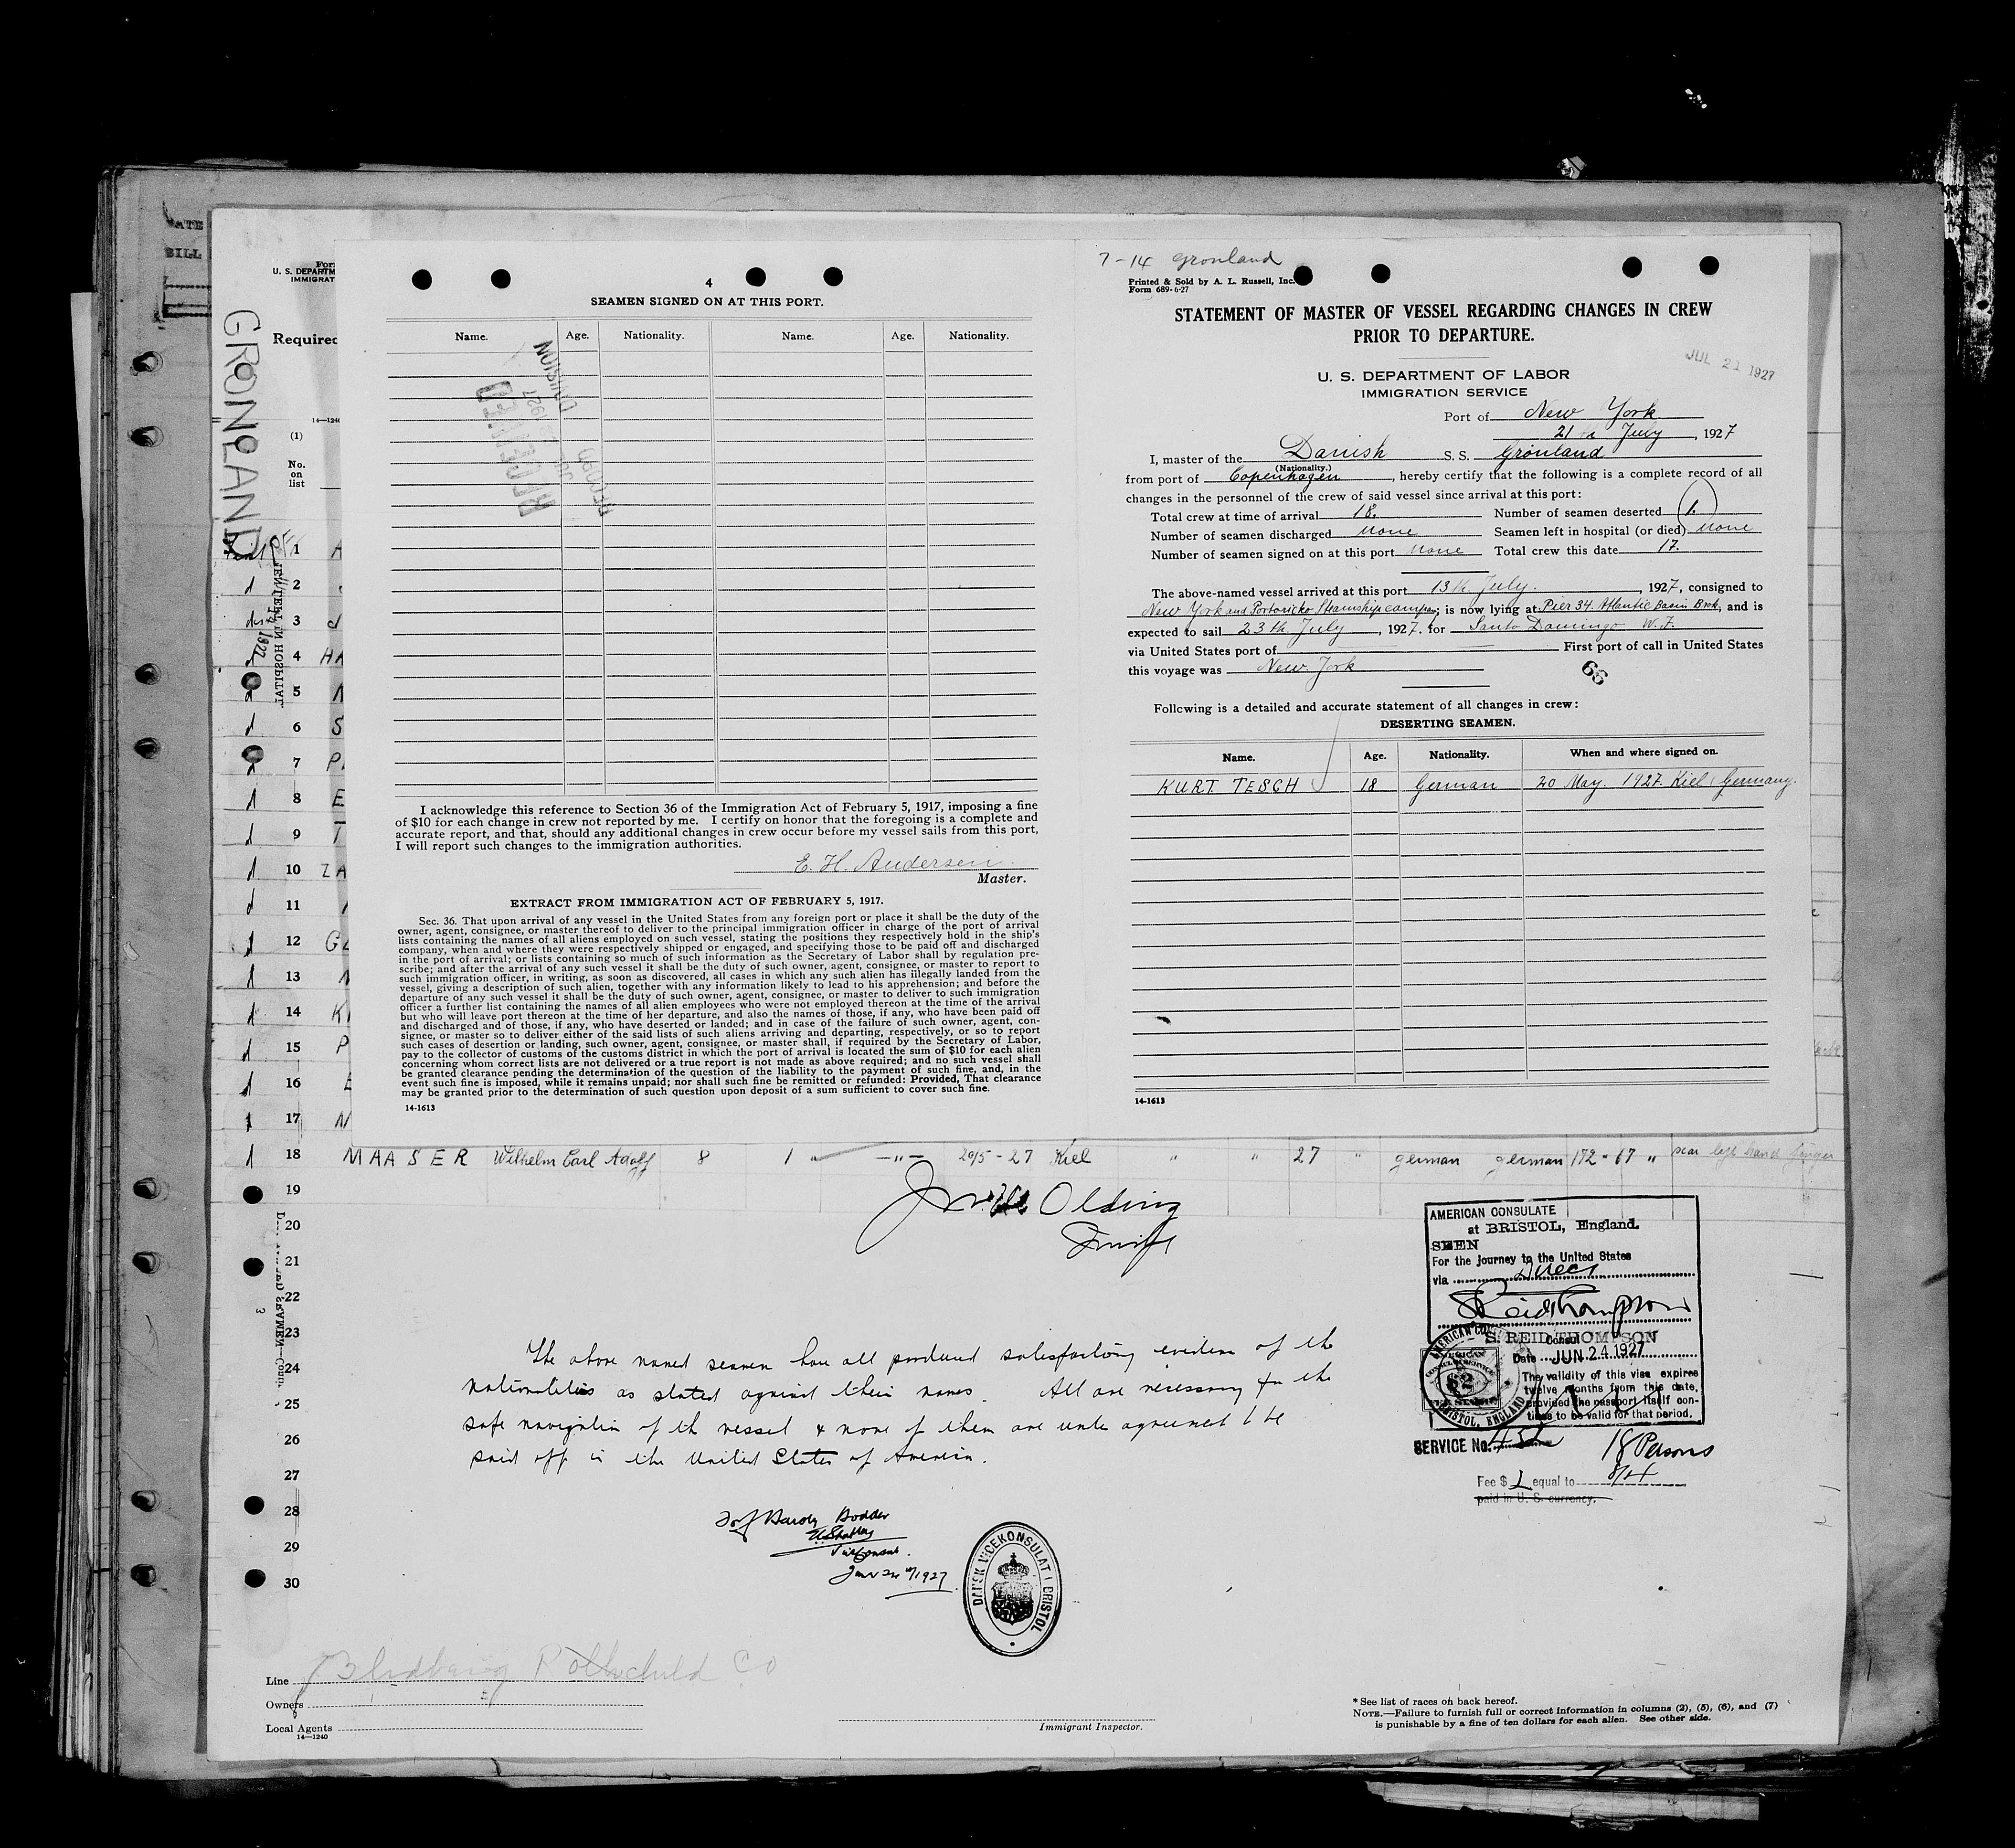 ATE
BILL
GRONLAND
For
U. S. DEPARTM
IMMIGRAT
Required
14—124
(1)
No.
on
list
4
SEAMEN SIGNED ON AT THIS PORT.
Name. Age. Nationality. Name. Age. Nationality.
RECEIVED
1927
DIVISION
RECORD
I acknowledge this reference to Section 36 of the Immigration Act of February 5, 1917, imposing a fine
of $10 for each change in crew not reported by me. I certify on honor that the foregoing is a complete and
accurate report, and that, should any additional changes in crew occur before my vessel sails from this port,
I will report such changes to the immigration authorities.
E. H. Andersen.
Master.
EXTRACT FROM IMMIGRATION ACT OF FEBRUARY 5, 1917.
Sec. 36. That upon arrival of any vessel in the United States from any foreign port or place it shall be the duty of the
owner, agent, consignee, or master thereof to deliver to the principal immigration officer in charge of the port of arrival
lists containing the names of all aliens employed on such vessel, stating the positions they respectively hold in the ship's
company, when and where they were respectively shipped or engaged, and specifying those to be paid off and discharged
in the port of arrival; or lists containing so much of such information as the Secretary of Labor shall by regulation pre-
scribe; and after the arrival of any such vessel it shall be the duty of such owner, agent, consignee, or master to report to
such immigration officer, in writing, as soon as discovered, all cases in which any such alien has illegally landed from the
vessel, giving a description of such alien, together with any information likely to lead to his apprehension; and before the
departure of any such vessel it shall be the duty of such owner, agent, consignee, or master to deliver to such immigration
officer a further list containing the names of all alien employees who were not employed thereon at the time of the arrival
but who will leave port thereon at the time of her departure, and also the names of those, if any, who have been paid off
and discharged and of those, if any, who have deserted or landed; and in case of the failure of such owner, agent, con-
signee, or master so to deliver either of the said lists of such aliens arriving and departing, respectively, or so to report
such cases of desertion or landing, such owner, agent, consignee, or master shall, if required by the Secretary of Labor,
pay to the collector of customs of the customs district in which the port of arrival is located the sum of $10 for each alien
concerning whom correct lists are not delivered or a true report is not made as above required; and no such vessel shall
be granted clearance pending the determination of the question of the liability to the payment of such fine, and, in the
event such fine is imposed, while it remains unpaid; nor shall such fine be remitted or refunded: Provided, That clearance
may be granted prior to the determination of such question upon deposit of a sum sufficient to cover such fine.
14-1613
7-14 Gronland
Printed & Sold by A. L. Russell, Inc.
Form 689-6-27
STATEMENT OF MASTER OF VESSEL REGARDING CHANGES IN CREW
PRIOR TO DEPARTURE.
JUL 21 1927
U. S. DEPARTMENT OF LABOR
IMMIGRATION SERVICE
Port of New York
21 th July, 1927
I, master of the Danish S. S. Grönland
(Nationality.)
from port of Copenhagen, hereby certify that the following is a complete record of all
changes in the personnel of the crew of said vessel since arrival at this port:
Total crew at time of arrival 18. Number of seamen deserted 1.
Number of seamen discharged none Seamen left in hospital (or died) none
Number of seamen signed on at this port none Total crew this date 17.
The above-named vessel arrived at this port 13th July., 1927, consigned to
New York and Portoricko Steamship campay; is now lying at Pier 34. Atlantic Basin Brok, and is
expected to sail 23th July, 1927. for Santo Damingo W.J.
via United States port of First port of call in United States
this voyage was New York
66
Following is a detailed and accurate statement of all changes in crew:
DESERTING SEAMEN.
Name. Age. Nationality. When and where signed on.
KURT TESCH 18 German 20 May. 1927. Kiel Germany.
14-1613
1 A
2
3
4 HA
5
6 S
7 P
8 E
9 T
10 ZA
11
12 GL
13
14 K
15 P
16 E
17 M
18 MAASER Wilhelm Carl Adolf 8 1 " —"— 20/5-27 Kiel " " 27 " german german 172 " 67 " scar left hand finger
19
20
21
22
23
24
25
26
27
28
29
30
Olding
AMERICAN CONSULATE
at BRISTOL, England.
SEEN
For the journey to the United States
via Direct
S Reid Thompson
S. REID THOMPSON
Consul
Date JUN 24 1927
The validity of this visa expires
twelve months from this date,
provided the passport itself con-
tinues to be valid for that period.
SERVICE No.
18 Persons
Fee $ 1 equal to
paid in U. S. currency.
The above named seamen have all produced satisfactory evidence of the
nationalities as stated against their names. All are necessary for the
safe navigation of the vessel & none of them are under agreement to be
paid off in the United States of America.
Vice Consul.
June 24th/1927
DANSK VICEKONSULAT I BRISTOL
Line Rothchild Co
Owners
Local Agents
14—1240
Immigrant Inspector.
* See list of races on back hereof.
NOTE.—Failure to furnish full or correct information in columns (2), (5), (6), and (7)
is punishable by a fine of ten dollars for each alien. See other side.